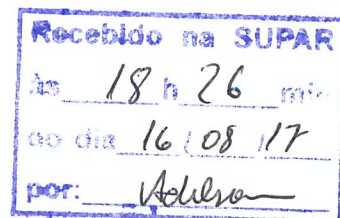 Recebido na SUPAR
às 18 h 26 min
ao dia 16/08/17
por: